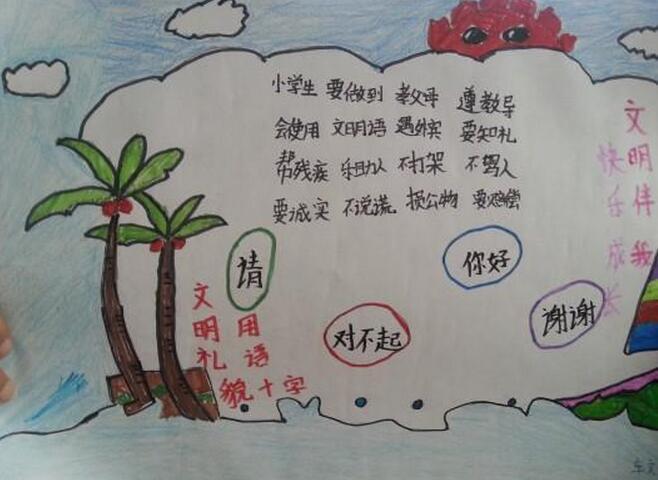 小学生 要做到 孝父母 遵教导
会使用 文明语 遇外宾 要知礼
帮残疾 乐助人 不打架 不骂人
要诚实 不说谎 损公物 要赔偿
请
你好
对不起
谢谢
文明礼貌
用语
十字
文明伴我
快乐成长